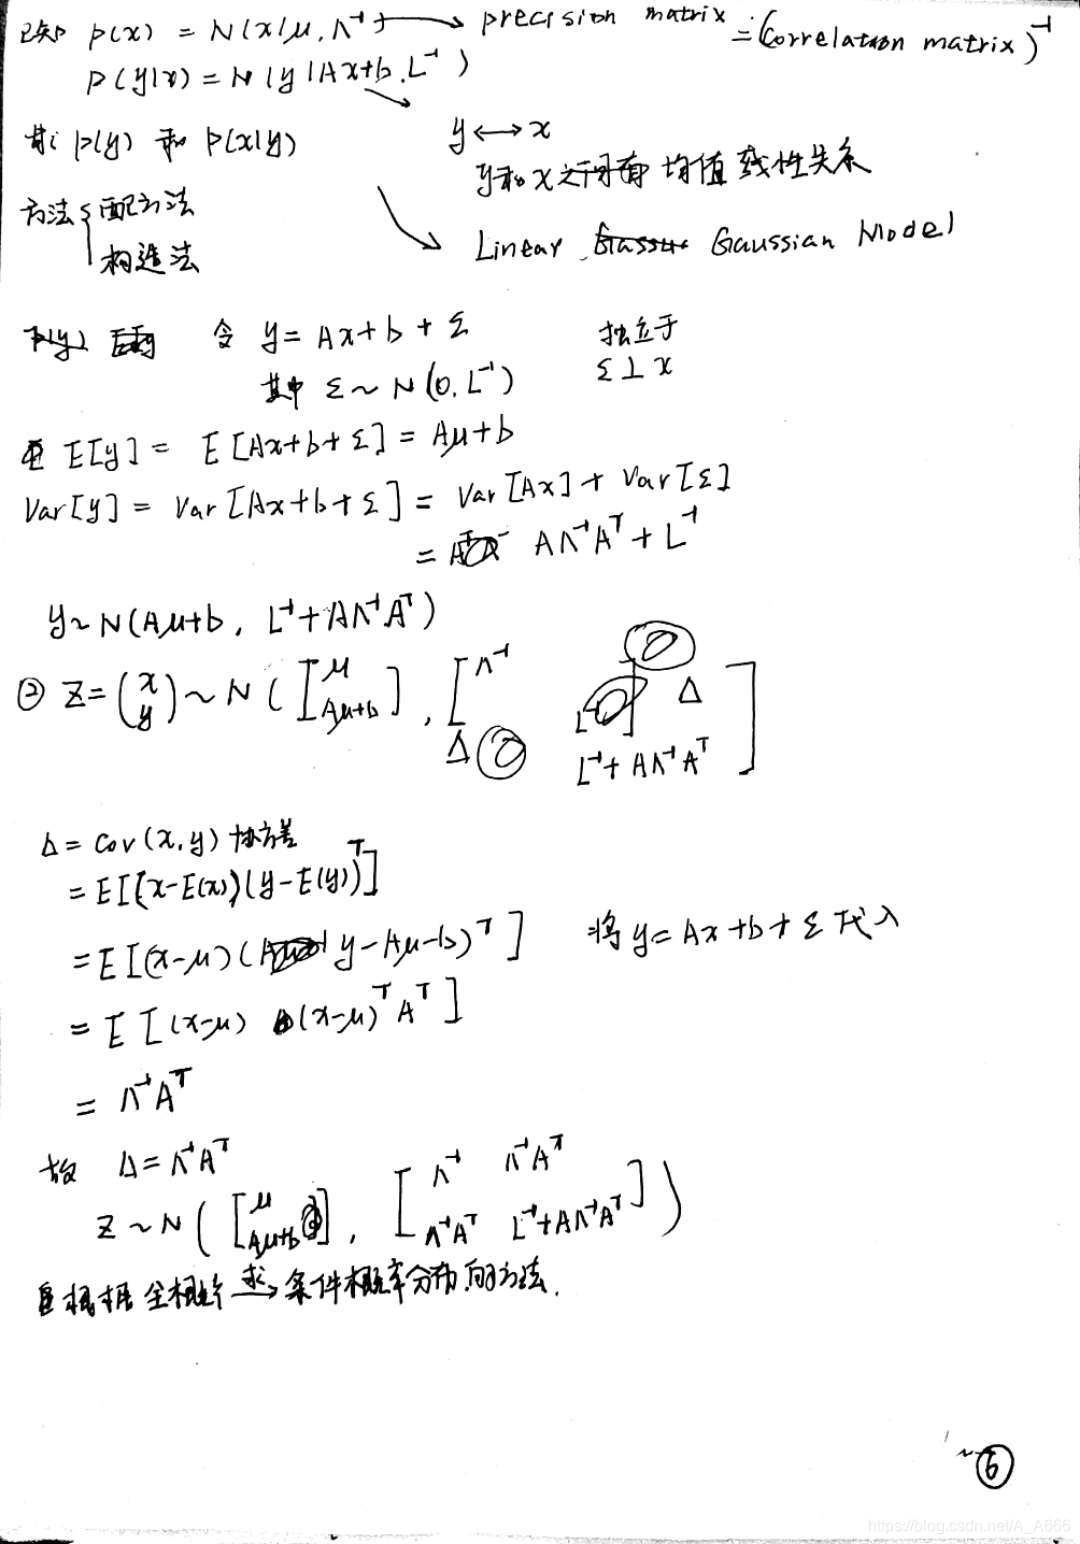 已知 p(x) = N(x|μ, Λ⁻¹) → precision matrix = (Correlation matrix)⁻¹
P(y|x) = N(y|Ax+b, L⁻¹)
求: p(y) 和 p(x|y)
y ↔ x
y和x之间有均值线性关系
方法 { 配方法
构造法
Linear Gaussian Model
令 y = Ax+b+Σ 独立于
其中 Σ ~ N(0, L⁻¹) Σ⊥x
E[y] = E[Ax+b+Σ] = Aμ+b
Var[y] = Var[Ax+b+Σ] = Var[Ax] + Var[Σ]
= AΛ⁻¹Aᵀ + L⁻¹
y ~ N(Aμ+b, L⁻¹+AΛ⁻¹Aᵀ)
② Z = (x y) ~ N([μ Aμ+b], [Λ⁻¹ Δ
Δ L⁻¹+AΛ⁻¹Aᵀ]
Δ = Cov(x,y) 协方差
= E[(x-E(x))(y-E(y))ᵀ]
= E[(x-μ)(y-Aμ-b)ᵀ] 将 y=Ax+b+Σ 代入
= E[(x-μ)(x-μ)ᵀAᵀ]
= Λ⁻¹Aᵀ
故 Δ = Λ⁻¹Aᵀ
Z ~ N([μ Aμ+b], [Λ⁻¹ Λ⁻¹Aᵀ
Λ⁻¹Aᵀ L⁻¹+AΛ⁻¹Aᵀ])
根据全概率 求→ 条件概率分布的方法.
~⑥
https://blog.csdn.net/A_A666